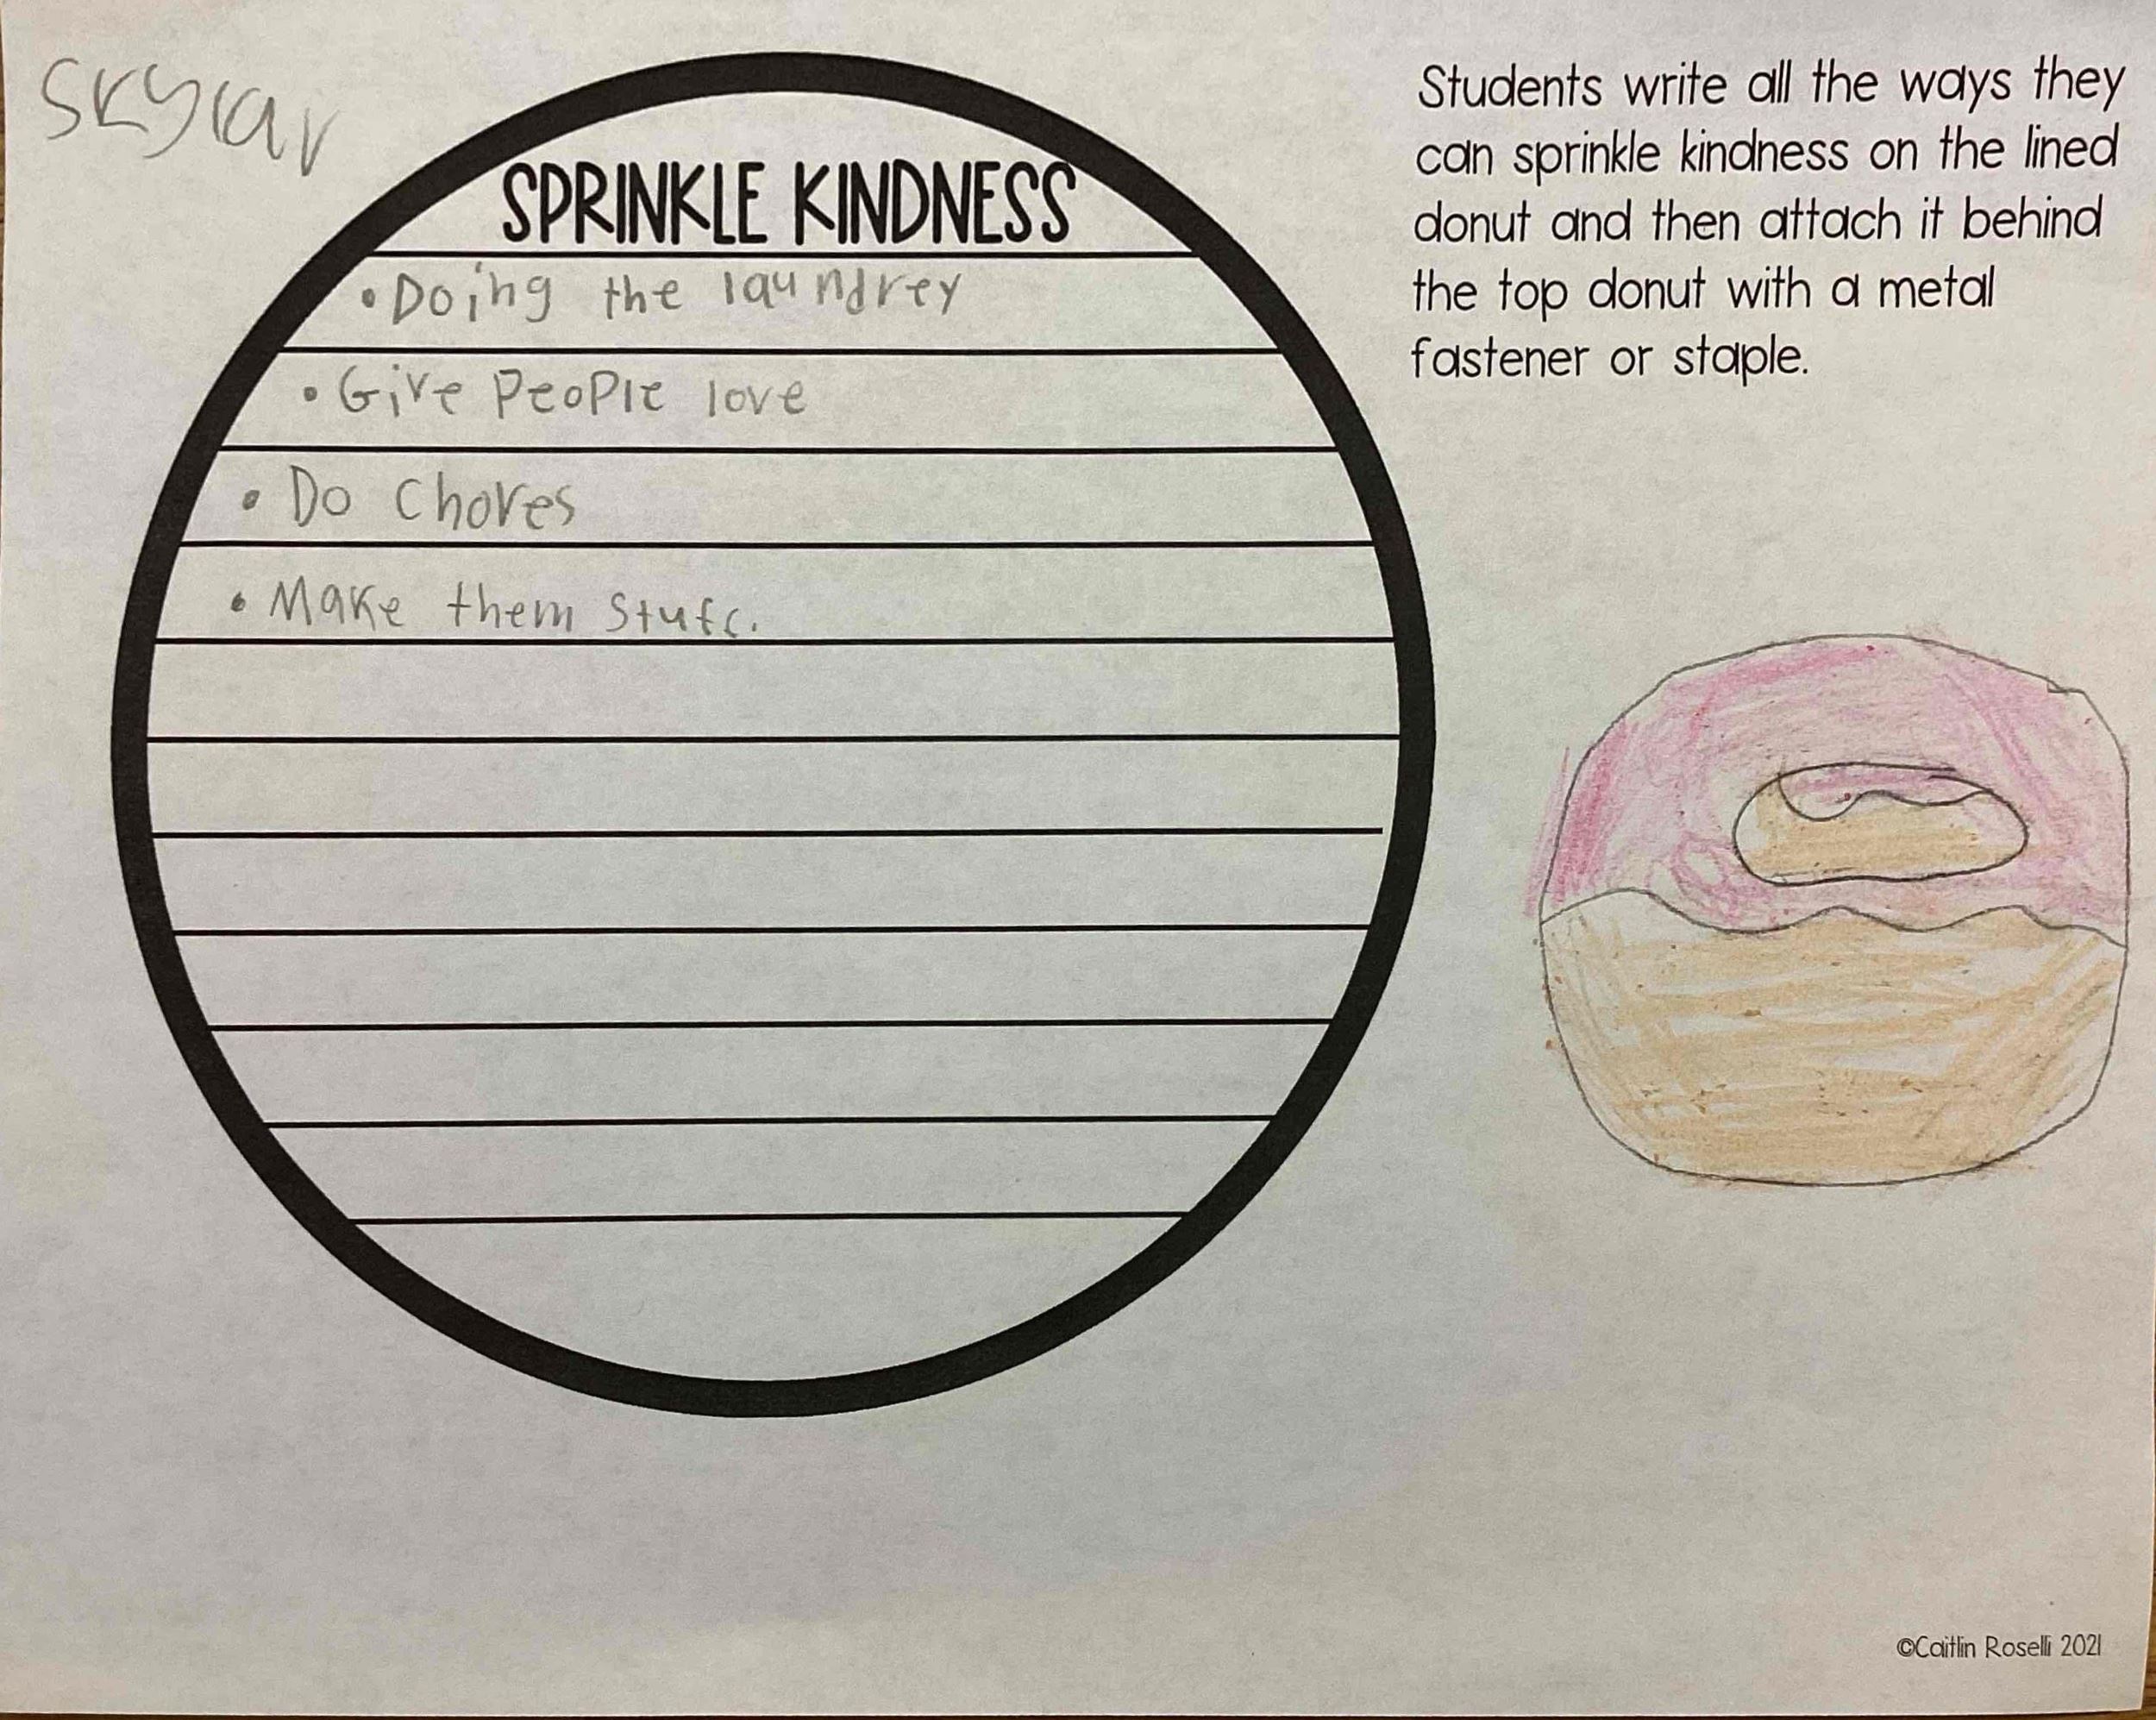 Skylar
SPRINKLE KINDNESS
• Doing the laundrey
• Give People love
• Do Chores
• Make them stuff.
Students write all the ways they
can sprinkle kindness on the lined
donut and then attach it behind
the top donut with a metal
fastener or staple.
©Caitlin Roselli 2021